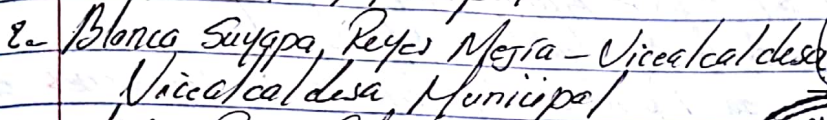 2- Blanca Suyapa Reyes Mejía - Vicealcaldesa
Vicealcaldesa Municipal